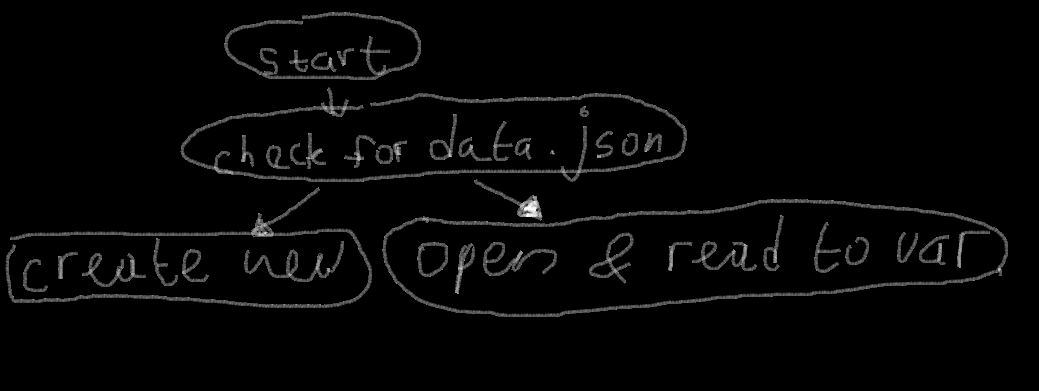 start
check for data.json
create new
open & read to var